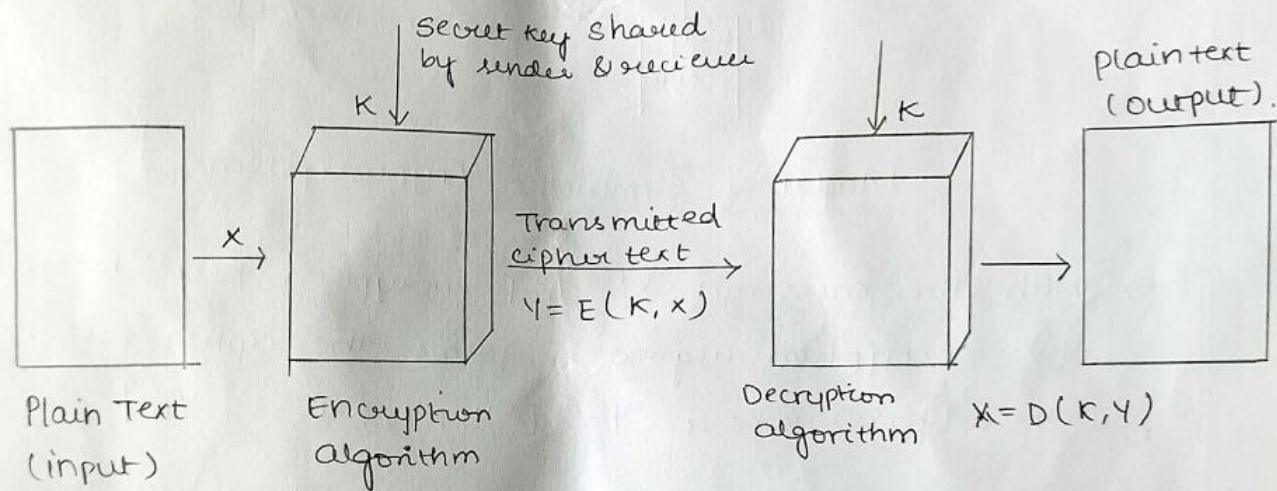 Secret key shared
by sender & reciever
K
K
plain text
(output).
X
Transmitted
cipher text
Y = E(K, X)
Plain Text
(input)
Encryption
algorithm
Decryption
algorithm
X = D(K, Y)